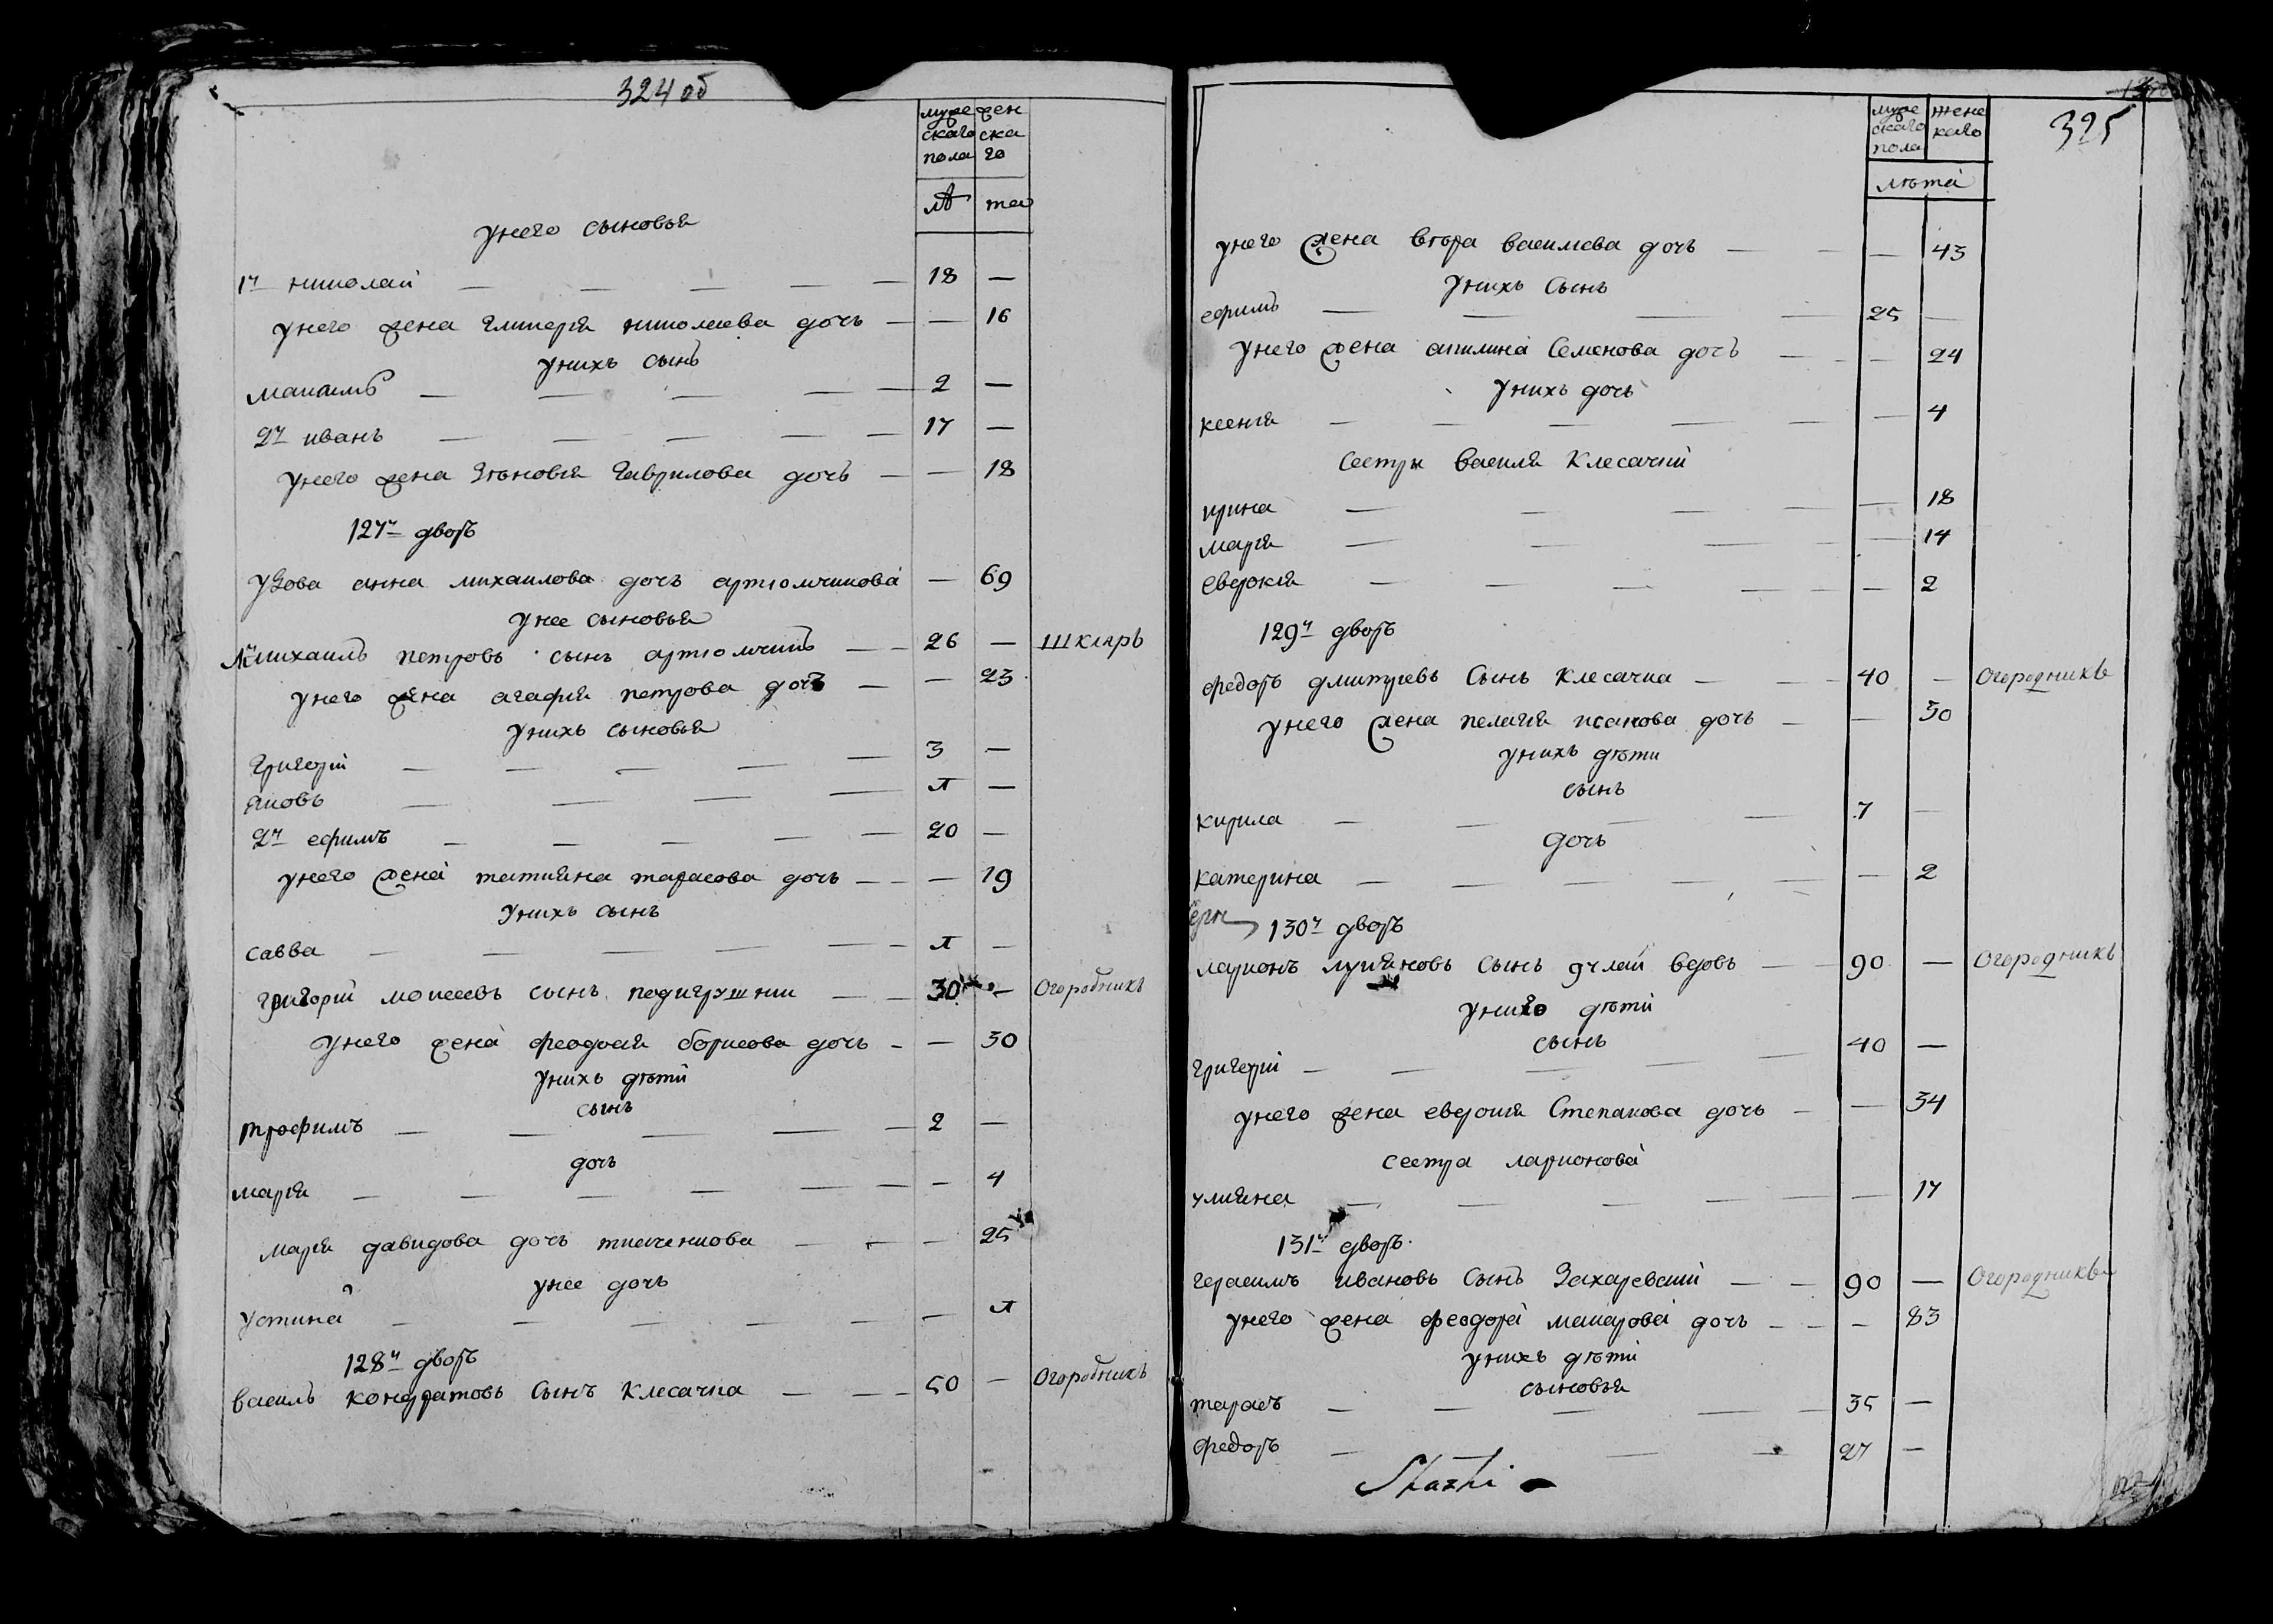 324 об
муже жен
скаго ска
пола го
лѣ та
унего сыновья
1й николаи — 18 —
унего жена гликерія николаева дочь — 16
унихъ сынъ
максимъ — 2 —
2й иванъ — 17 —
унего жена зѣновія гаврилова дочь — 18
127й дворъ
удова анна михаилова дочь артюмчикова — 69
унее сыновья
1й михаилъ петровъ сынъ артюмчикъ — 26 — шкляръ
унего жена агафія петрова дочъ — 23
унихъ сыновья
григорій — 3 —
яковъ — —
2й ефимъ — 20 —
унего жена татияна тарасова дочь — 19
унихъ сынъ
савва — —
григорій моисеевъ сынъ 30 — Огородникъ
унего жена феодосия борисова дочь — 30
унихъ дѣти
сынъ
трофимъ — 2 —
дочь
марія — 4
марія давидова дочь — 25
унее дочь
устина —
128й дворъ
василь кондратовъ сынъ клесачка — 50 — Огородникъ
325
муже жене
скаго каго
пола
лѣта
унего жена вѣра василева дочь — 43
унихъ сынъ
ефимъ — 25 —
унего жена акилина семенова дочь — 24
унихъ дочь
ксенія — 4
сестри василя клесачки
ирина — 18
марія — 14
евдокія — 2
129й дворъ
федоръ дмитріевъ сынъ клесачка — 40 — Огородникъ
унего жена пелагія исакова дочь — 30
унихъ дѣти
сынъ
кирила — 7 —
дочь
катерина — 2
130й дворъ
ларионъ лукяновъ сынъ вдовъ — 90 — Огородникъ
унего дѣти
сынъ
григорій — 40 —
унего жена евдокия степанова дочь — 34
сестра ларионова
улияна — 17
131й дворъ
герасимъ ивановъ сынъ захаревский — 90 — Огородникъ
унего жена феодора макарова дочь — 83
унихъ дѣти
сыновья
тарасъ — 35 —
федоръ — 27 —